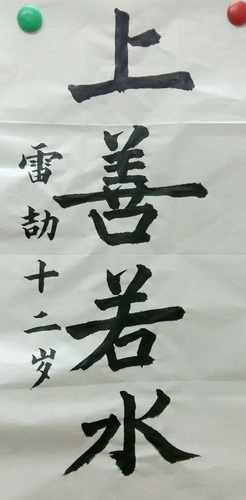 上善若水
雷劼十二岁